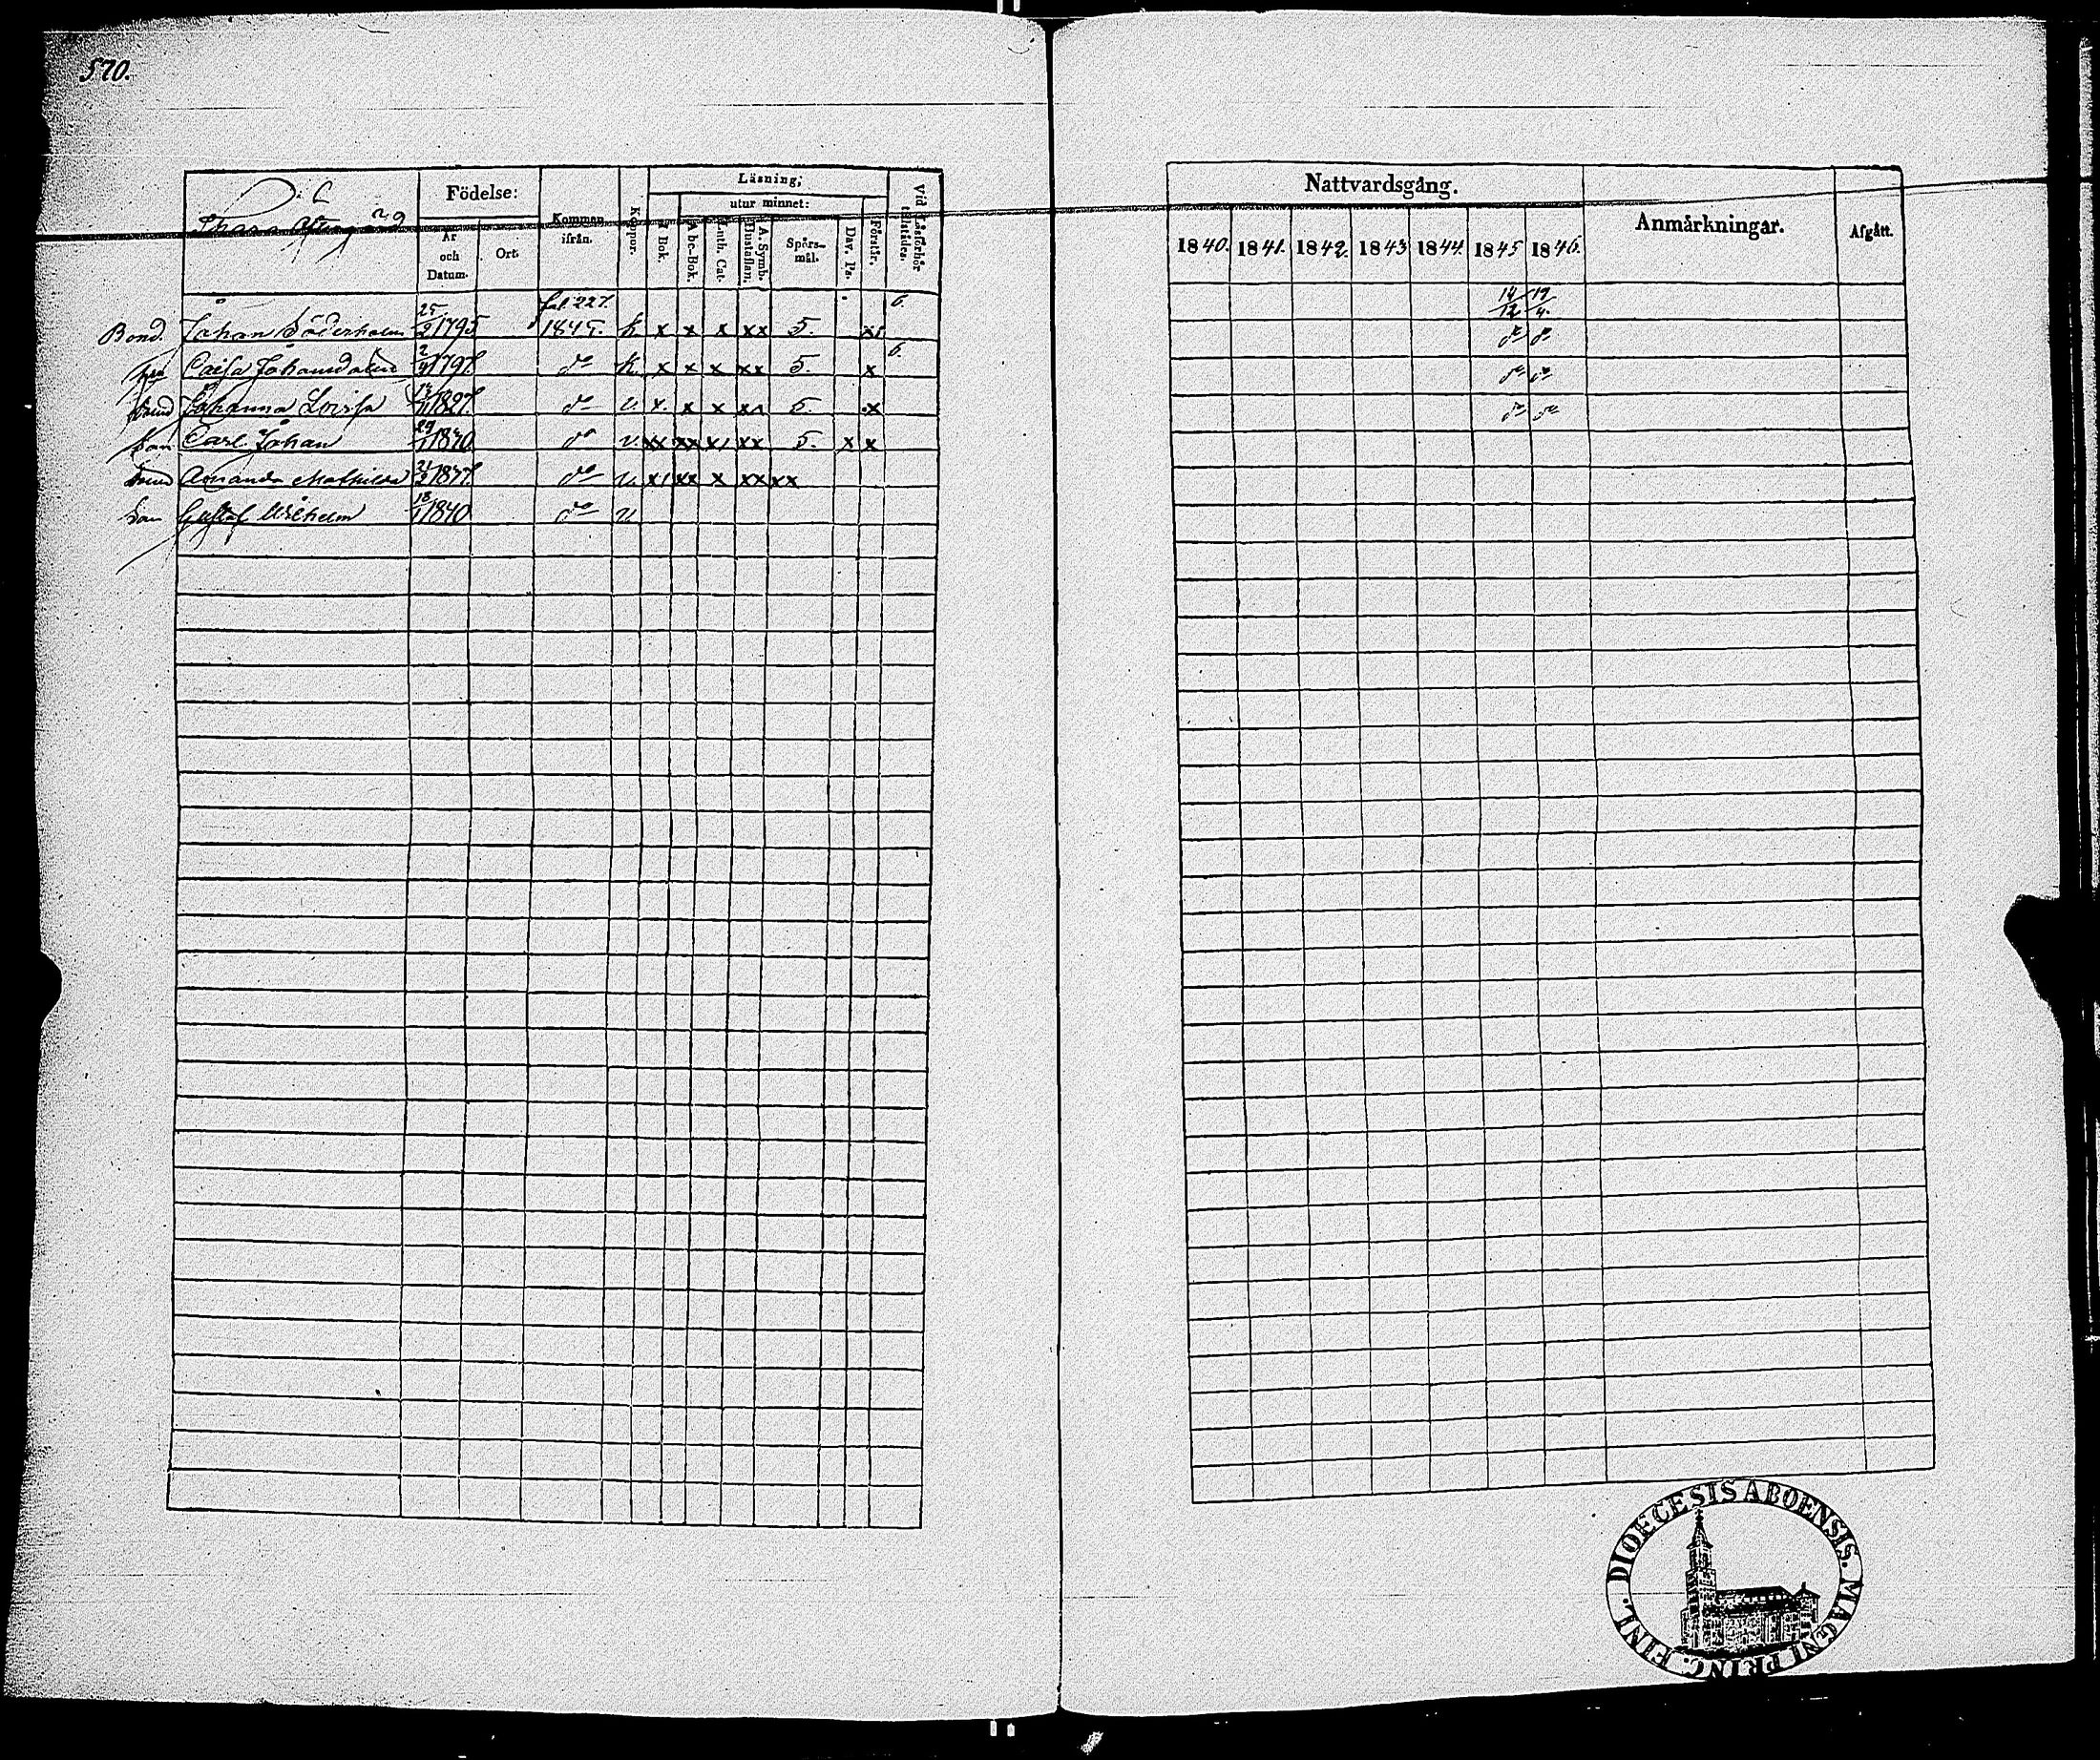 570.
Födelse:
Kommen ifrån.
Koppor.
Läsning;
utur minnet:
Vid Läsförhör tillstädes.
År och Datum.
Ort.
I Bok.
A b c-Bok.
Luth. Cat.
A. Symb. Hustaflan.
Spörs-mål.
Dav. Ps.
Förstår.
Bond. Johan Söderholm 25/2 1795 fol 227. 1845. k. x x x xx 5. x 6.
Caisa Johansdotter 2/4 1797. do k. x x x xx 5. x 6.
Johanna Lovisa 1827. do v. x. x x x 5. x
Son Carl Johan 29/1 1830 do v. xx xx x xx 5. x x
Amanda Mathilda 1837. do v. x xx x xx xx
Son Gustaf Wilhelm 18/1 1840 do v.
Nattvardsgång.
Anmärkningar.
Afgått.
1840. 1841. 1842. 1843 1844. 1845 1846.
14/12 19/4.
do do
do do
do do
DIOECESIS ABOENSIS. MAGNI PRINC. FINL.